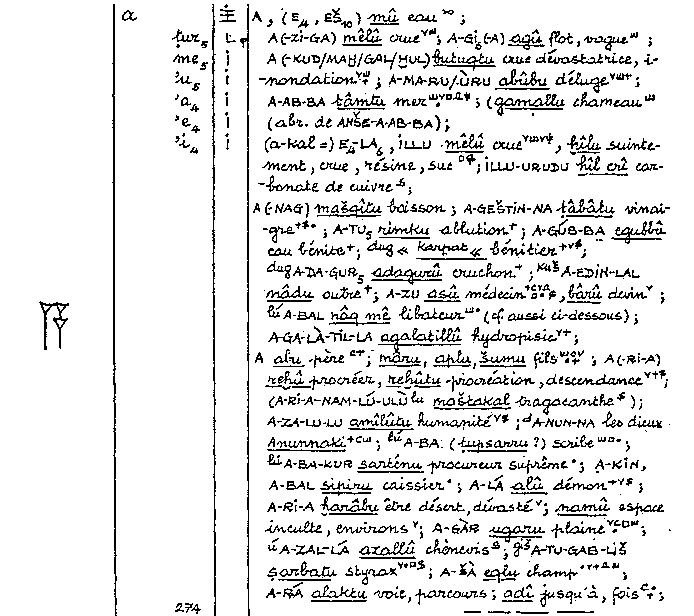 a A, (E₄, EŠ₁₀) mû eau ;
ṭur₅ A(-ZI-GA) mêlû crue ; A-GI₆(-A) agû flot, vague ;
me₅ i A(-KUD/MAḪ/GAL/ḪUL) butuqtu crue dévastatrice, i-
'u₅ i -nondation ; A-MA-RU/ÙRU abûbu déluge ;
'a₄ i A-AB-BA tâmtu mer ; (gamallu chameau
'e₄ i (abr. de ANŠE-A-AB-BA) ;
'i₄ i (a-kal =) E₄-LA₆, ILLU mêlû crue, ḫîlu suinte-
ment, crue, résine, suc ; ILLU-URUDU ḫîl erî car-
-bonate de cuivre ;
A(-NAG) mašqîtu boisson ; A-GEŠTIN-NA ṭâbâtu vinai-
-gre ; A-TU₅ rimku ablution ; A-GÚB-BA egubbû
eau bénite ; dug « karpat « bénitier ;
dug A-DA-GUR₅ adagurû cruchon ; kuš A-EDIN-LAL
nâdu outre ; A-ZU asû médecin, bârû devin ;
lú A-BAL nâq mê libateur (cf aussi ci-dessous) ;
A-GA-LÀ-TIL-LA agalatillû hydropisie ;
A abu père ; mâru, aplu, šumu fils ; A(-RI-A)
reḫû procréer, reḫûtu procréation, descendance ;
(A-RI-A-NAM-LÚ-ULÙ lu maštakal tragacanthe) ;
A-ZA-LU-LU amîlûtu humanité ; d A-NUN-NA les dieux
Anunnaki ; lú A-BA (ṭupsarru ?) scribe ;
lú A-BA-KUR sartênu procureur suprême ; A-KIN,
A-BAL sipiru caissier ; A-LÁ alû démon ;
A-RI-A ḫarâbu être désert, dévasté ; namû espace
inculte, environs ; A-GÀR ugaru plaine ;
ú A-ZAL-LÁ azallû chènevis ; giš A-TU-GAB-LIŠ
ṣarbatu styrax ; A-ŠÀ eqlu champ ;
A-RÁ alaktu voie, parcours ; adî jusqu'à, fois ;
274